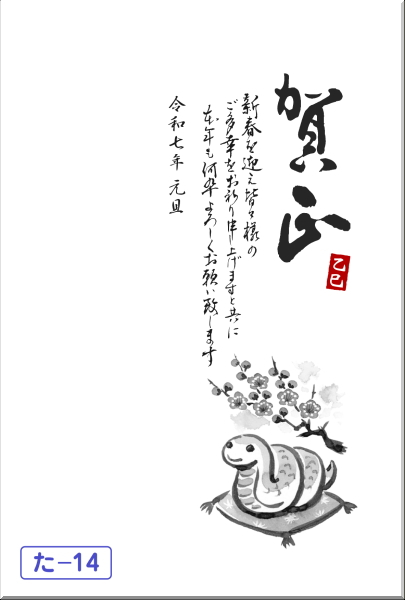 賀正
乙巳
新春を迎え皆々様の
ご多幸をお祈り申し上げますと共に
本年も何卒よろしくお願い致します
令和七年 元旦
た-14